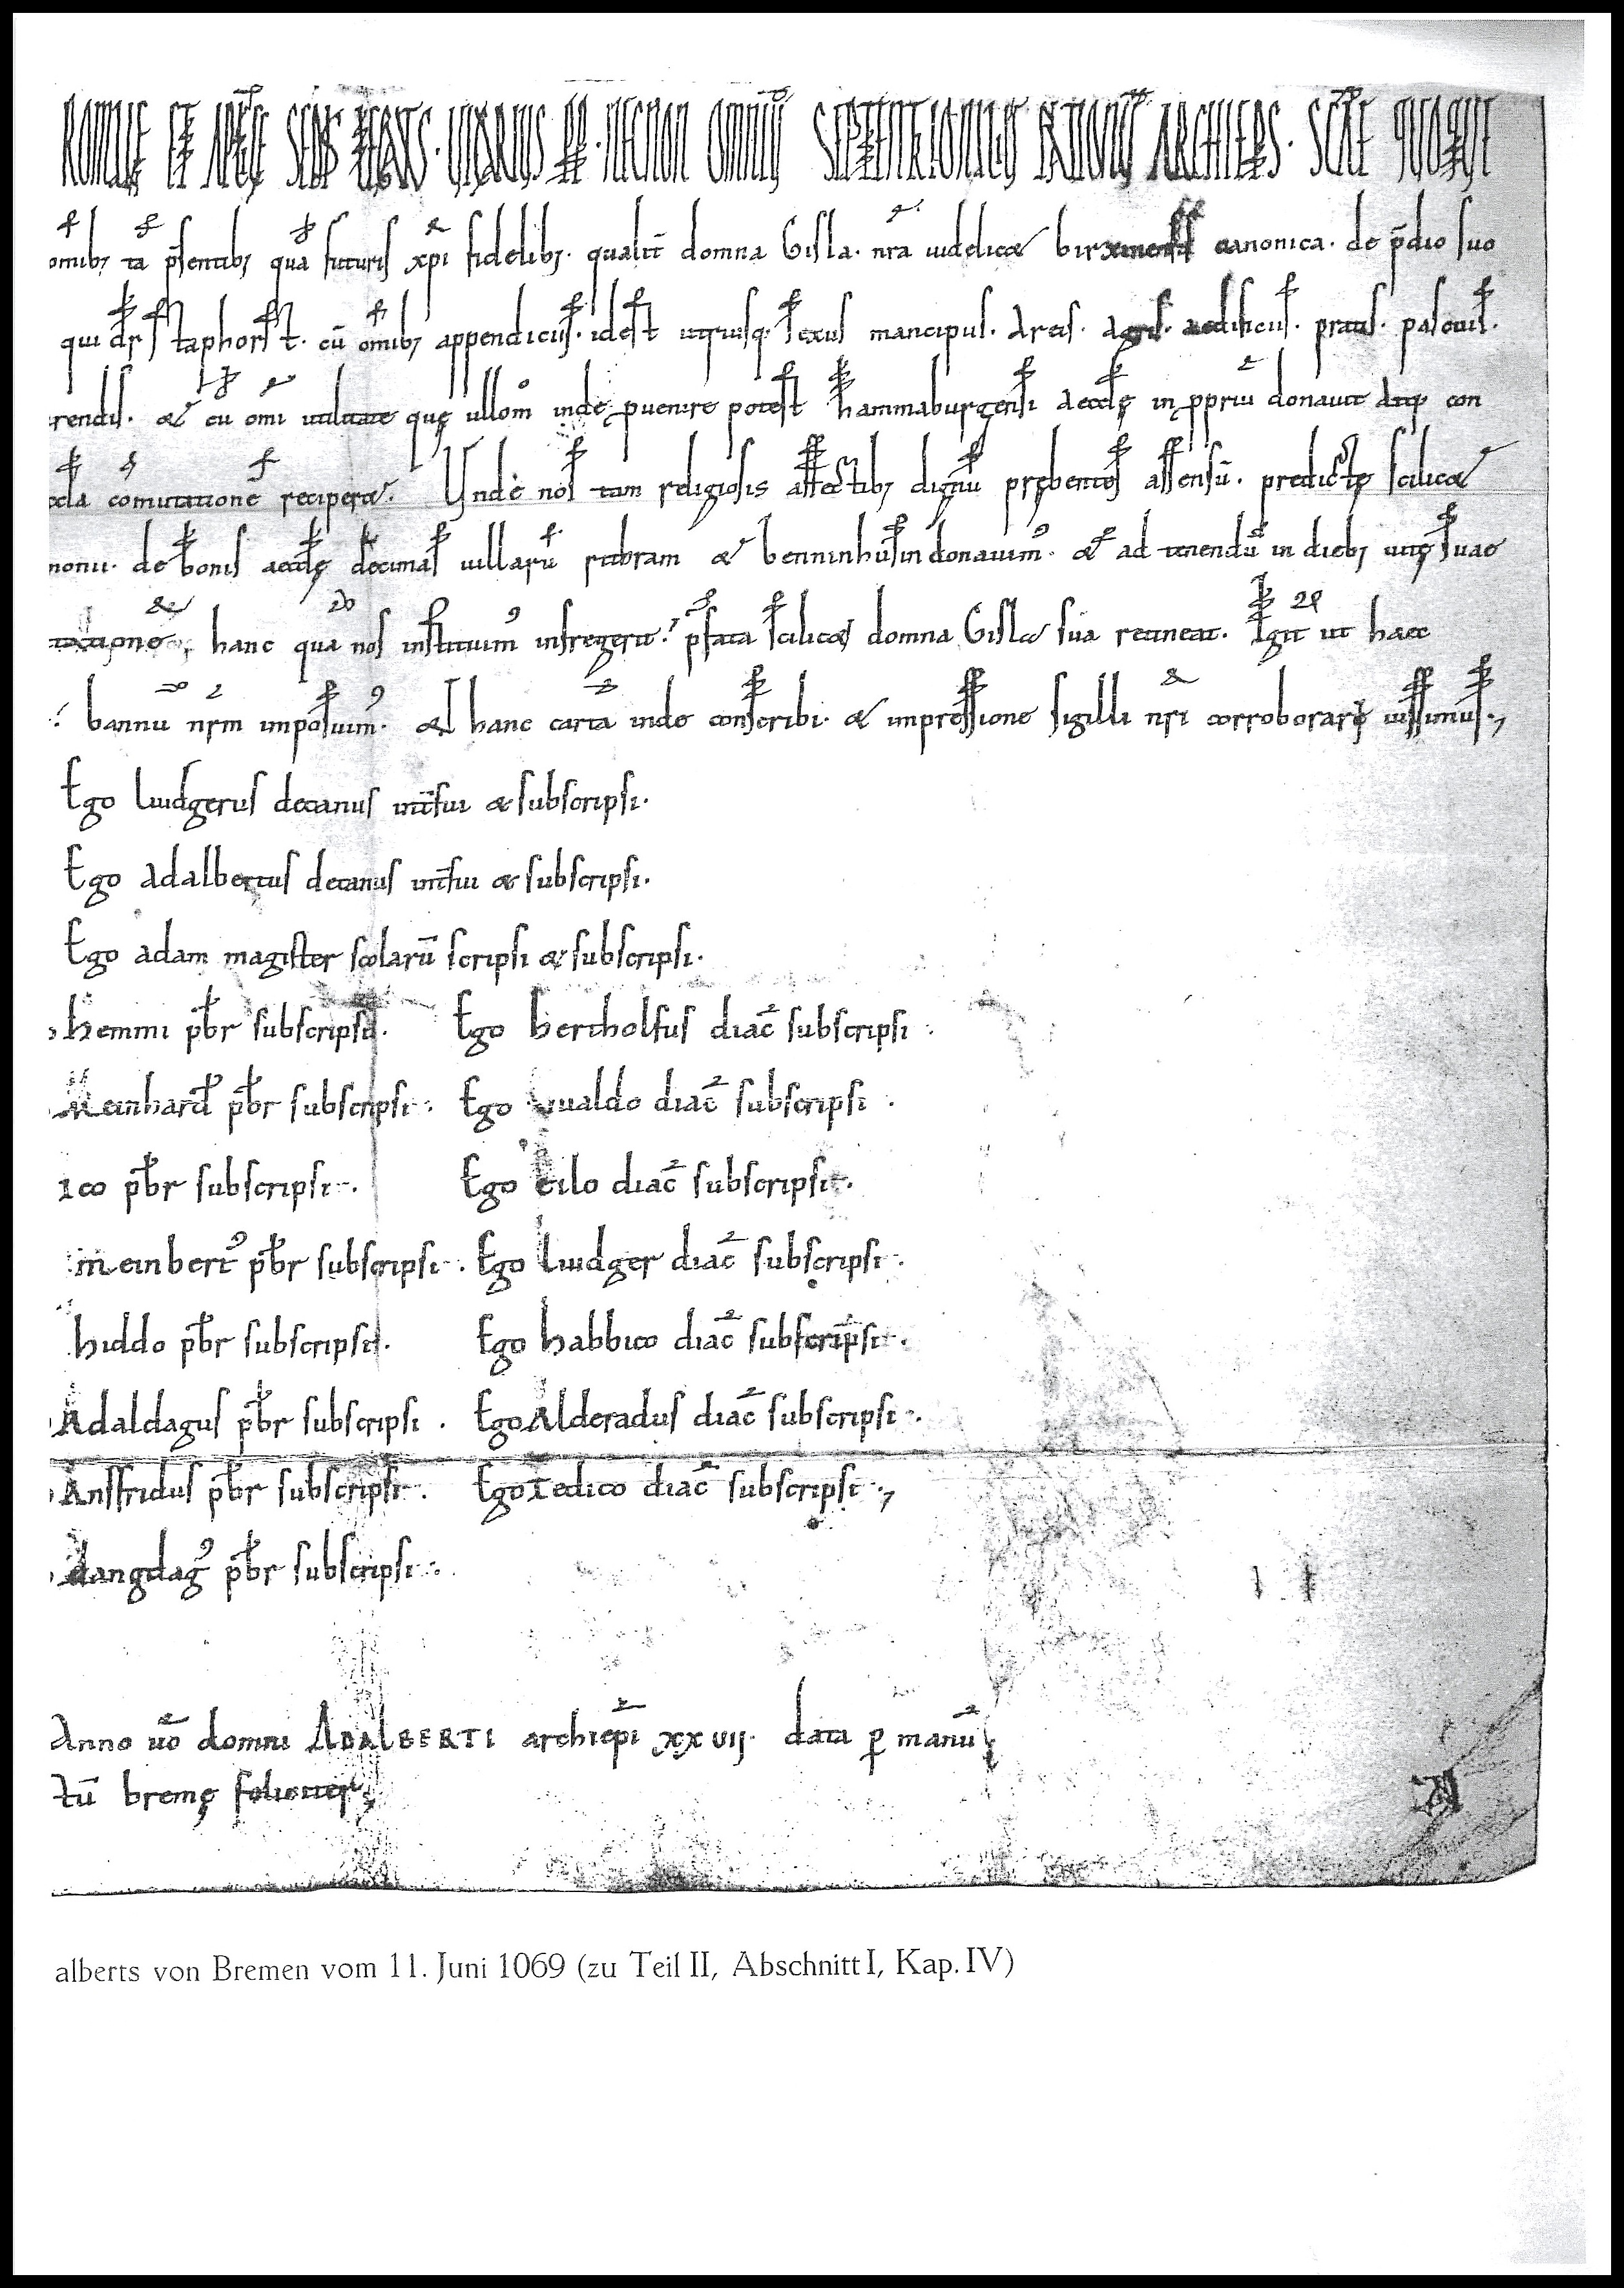 ROMANE ET APĆE SEDIS LEGATUS · UICARIUS · NECNON OMNIŪ SEPTENTRIONALIŪ NATIONŪ ARCHIEPS · SCAE QUOQUE
omib; tā p̄sentib; quā futuris xp̄i fidelib; · qualit̄ domna Gisla · nr̄a uidelicet birxinensis canonica · de p̄dio suo
qui dr̄ staphorst · cū omib; appendiciis · idest utriusq; sexus mancipiis · areis · agris · aedificiis · pratis · pascuis ·
rendis · & cū omi utilitate quę ullom̊ inde ꝑuenire potest hammaburgensi aecclę in ꝓpriū donauit atq; con
comutationē reciperet · Unde nos tam religiosis affectib; dignū prębentes assensū · predictę scilicet
nonii · de bonis aecclę decimas uillarū stubram & benninhusun donauim᾿ · & ad tenendū in dieb; uitę suae
hanc quā nos instituim᾿ infregerit ? p̄fata scilicet domna Gisla sua retineat · Igit̄ ut haec
bannū nr̄m imposuim᾿ · & hanc cartā inde conscribi · & impressione sigilli nr̄i corroborari iussimus ·,
Ego liudgerus decanus int̄fui & subscripsi ·
Ego adalbertus decanus int̄fui & subscripsi ·
Ego adam magister scolarū scripsi & subscripsi ·
hemmi pb̄r subscripsi · Ego bertholfus diac̄ subscripsi ·
Meinhard᾿ pb̄r subscripsi · Ego uualdo diac̄ subscripsi ·
ico pb̄r subscripsi · Ego eilo diac̄ subscripsi ·
meinbert᾿ pb̄r subscripsi · Ego liudger diac̄ subscripsi ·
hiddo pb̄r subscripsi · Ego habbico diac̄ subscripsi ·
Adaldagus pb̄r subscripsi · Ego Alderadus diac̄ subscripsi ·
Ansfridus pb̄r subscripsi · Ego tedico diac̄ subscripsi ·,
dangdag᾿ pb̄r subscripsi ·
Anno uō domni ADALBERTI archiep̄i xxvij · data ꝑ manū
tū bremę feliciter,
alberts von Bremen vom 11. Juni 1069 (zu Teil II, Abschnitt I, Kap. IV)